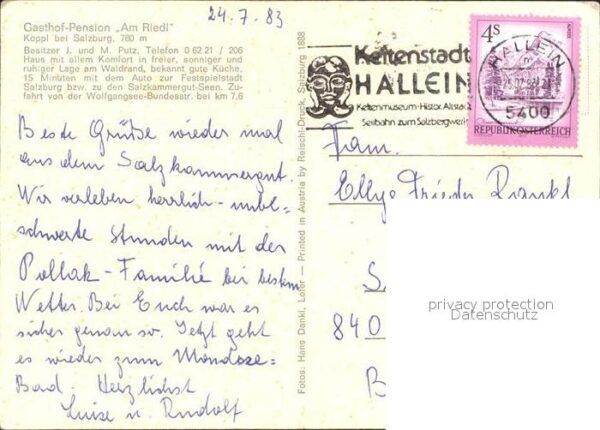 24.7.83
Gasthof-Pension „Am Riedl"
Koppl bei Salzburg, 780 m
Besitzer J. und M. Putz, Telefon 0 62 21 / 206
Haus mit allem Komfort in freier, sonniger und
ruhiger Lage am Waldrand, bekannt gute Küche,
15 Minuten mit dem Auto zur Festspielstadt
Salzburg bzw. zu den Salzkammergut-Seen. Zu-
fahrt von der Wolfgangsee-Bundesstr. bei km 7,6
Beste Grüße wieder mal
aus dem Salzkammergut.
Wir verleben herrlich-unbe-
schwerte Stunden mit der
Pollak-Familie bei bestem
Wetter. Bei Euch war es
sicher genau so. Jetzt geht
es wieder zum Mondsee-
Bad. Herzlichst
Luise u. Rudolf
Fotos: Hans Dankl, Lofer – Printed in Austria by Reischl-Druck, Salzburg 1898
Keltenstadt
HALLEIN
Keltenmuseum-Histor. Altstadt
Seilbahn zum Salzbergwerk
4S
HALLEIN
5400
REPUBLIK ÖSTERREICH
Fam.
Elly u. Frieder
840
privacy protection
Datenschutz